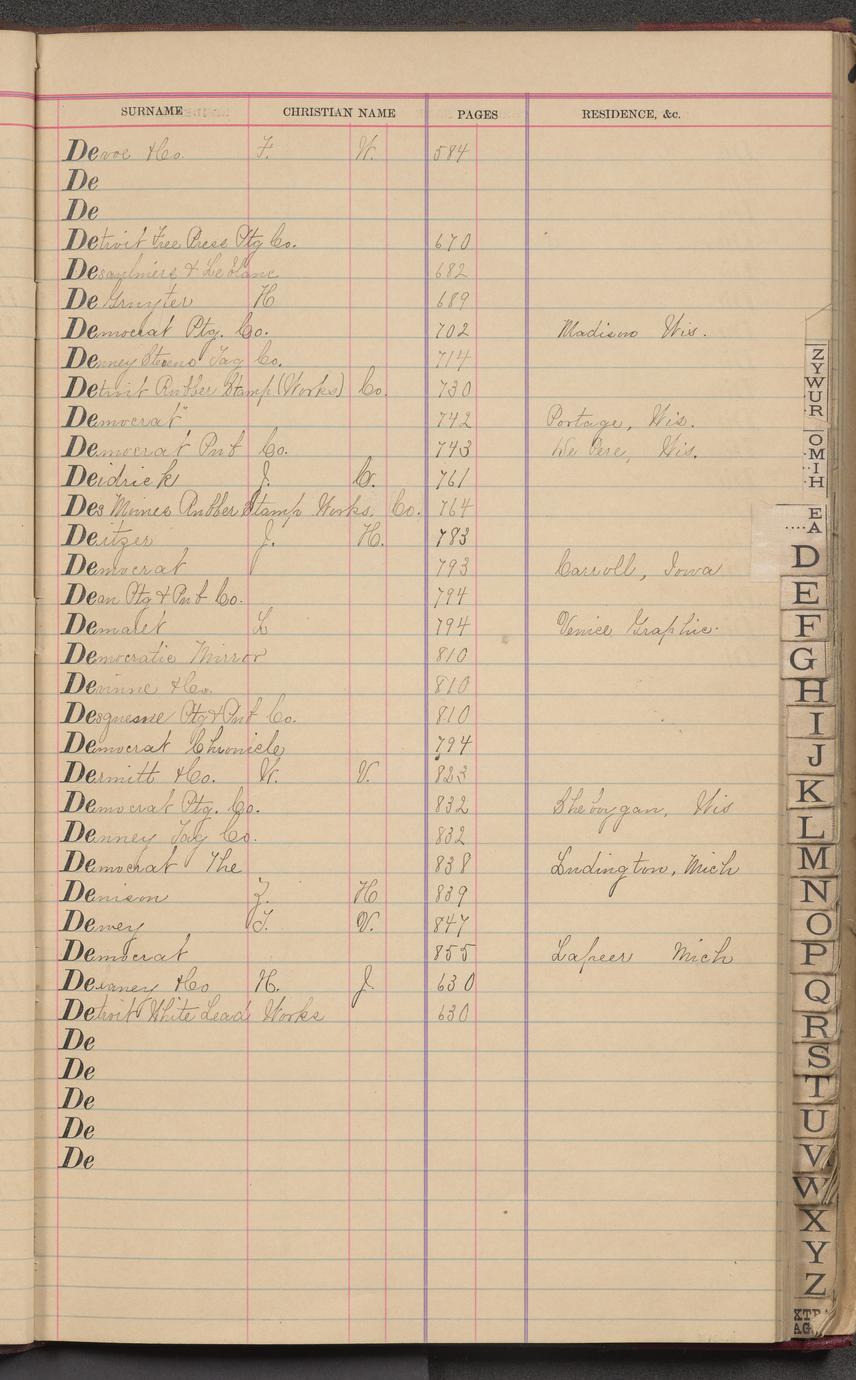 SURNAME CHRISTIAN NAME PAGES RESIDENCE, &c.
Devoe & Co. F. W. 584
De
De
Detroit Free Press Ptg Co. 670
Desaulniers & Le Blanc 682
De Gruyter H 689
Democrat Ptg. Co. 702 Madison Wis.
Denney Stevens Tag Co. 714
Detroit Rubber Stamp (Works) Co. 730
Democrat" 742 Portage, Wis.
Democrat Pub Co. 743 De Pere, Wis.
Deidrick J. C. 761
Des Moines Rubber Stamp Works. Co. 764
Deitzer J. H. 783
Democrat 793 Carroll, Iowa
Dean Ptg & Pub Co. 794
Demaret L 794 Venice Graphic.
Democratic Mirror 810
Devinne & Co. 810
Desquesne Ptg & Pub Co. 810
Democrat Chronicle 794
Dermitt & Co. W. V. 823
Democrat Ptg. Co. 832 Sheboygan, Wis
Denney Tag Co. 832
Democrat The 838 Ludington, Mich
Denison Z. H 839
Dewey T. V. 847
Democrat 855 Lapeer Mich
& Co H. J. 630
Detroit White Lead Works 630
De
De
De
De
De
Z
Y
W
U
R
O
M
I
H
E
A
D
E
F
G
H
I
J
K
L
M
N
O
P
Q
R
S
T
U
V
W
X
Y
Z